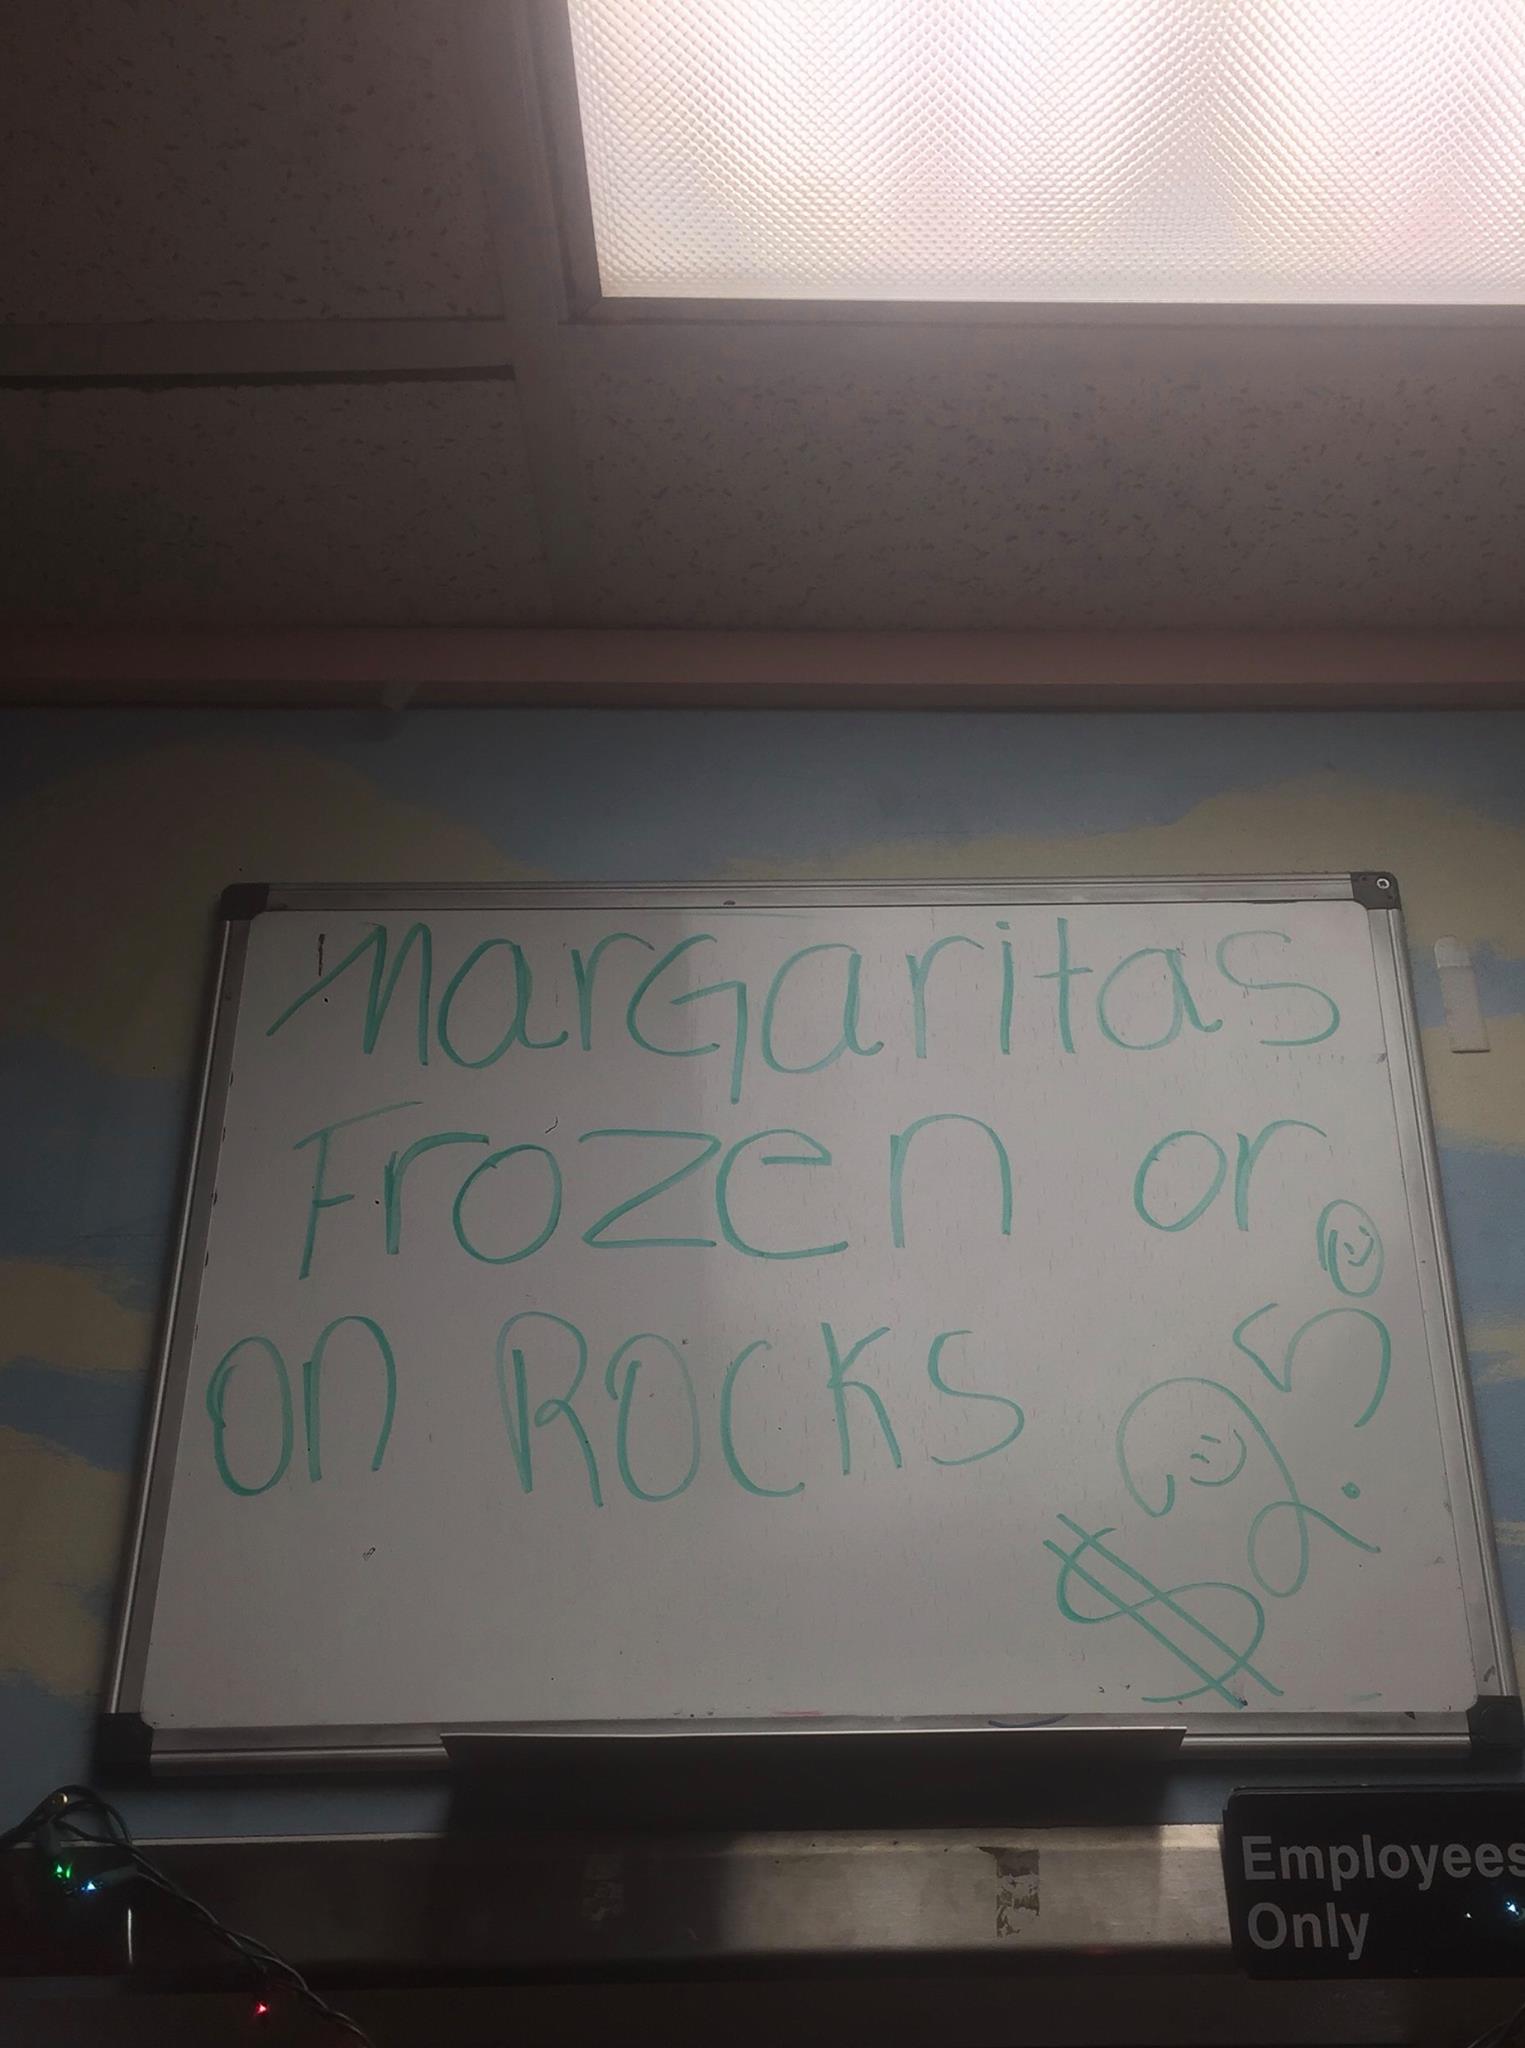 Margaritas
Frozen or
on Rocks
$2.5
Employees
Only